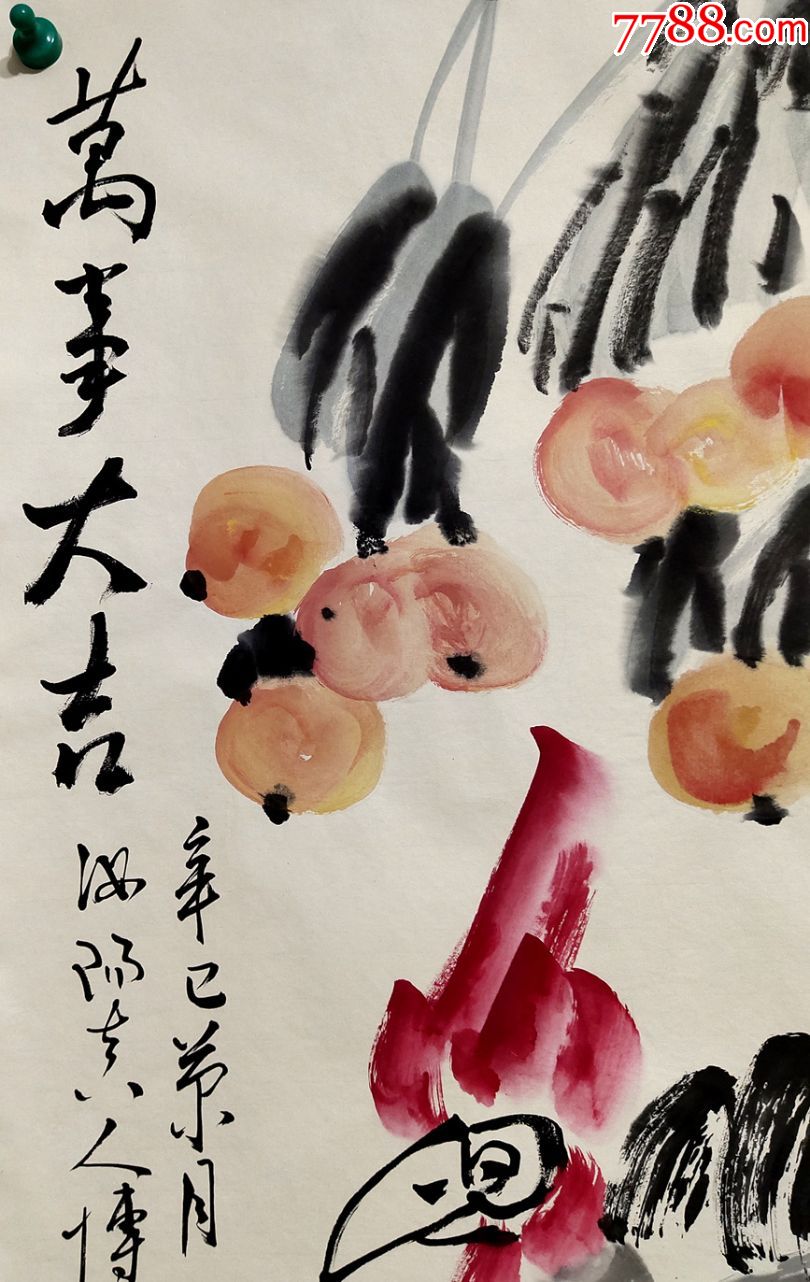 7788.com
萬事大吉
辛巳菊月
汝陽真人博